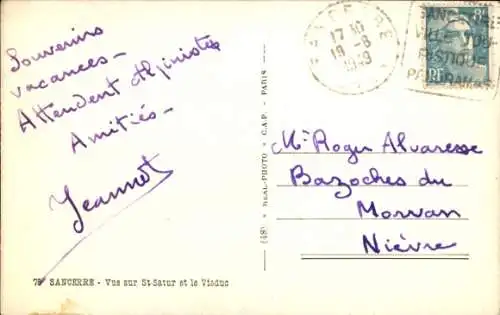 Souvenirs
vacances -
Attendent Alpinistes
Amitiés -
Jeannot
79 SANCERRE - Vue sur St-Satur et le Viaduc
(48) * REAL-PHOTO * C.A.P. - PARIS *
SANCERRE
17 30
18 -8
1949
VILLE
RF
Mr Roger Alvaresse
Bazoches du
Morvan
Nièvre